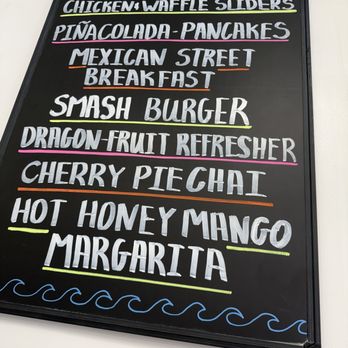 CHICKEN & WAFFLE SLIDERS
PIÑACOLADA-PANCAKES
MEXICAN STREET
BREAKFAST
SMASH BURGER
DRAGON-FRUIT REFRESHER
CHERRY PIE CHAI
HOT HONEY MANGO
MARGARITA